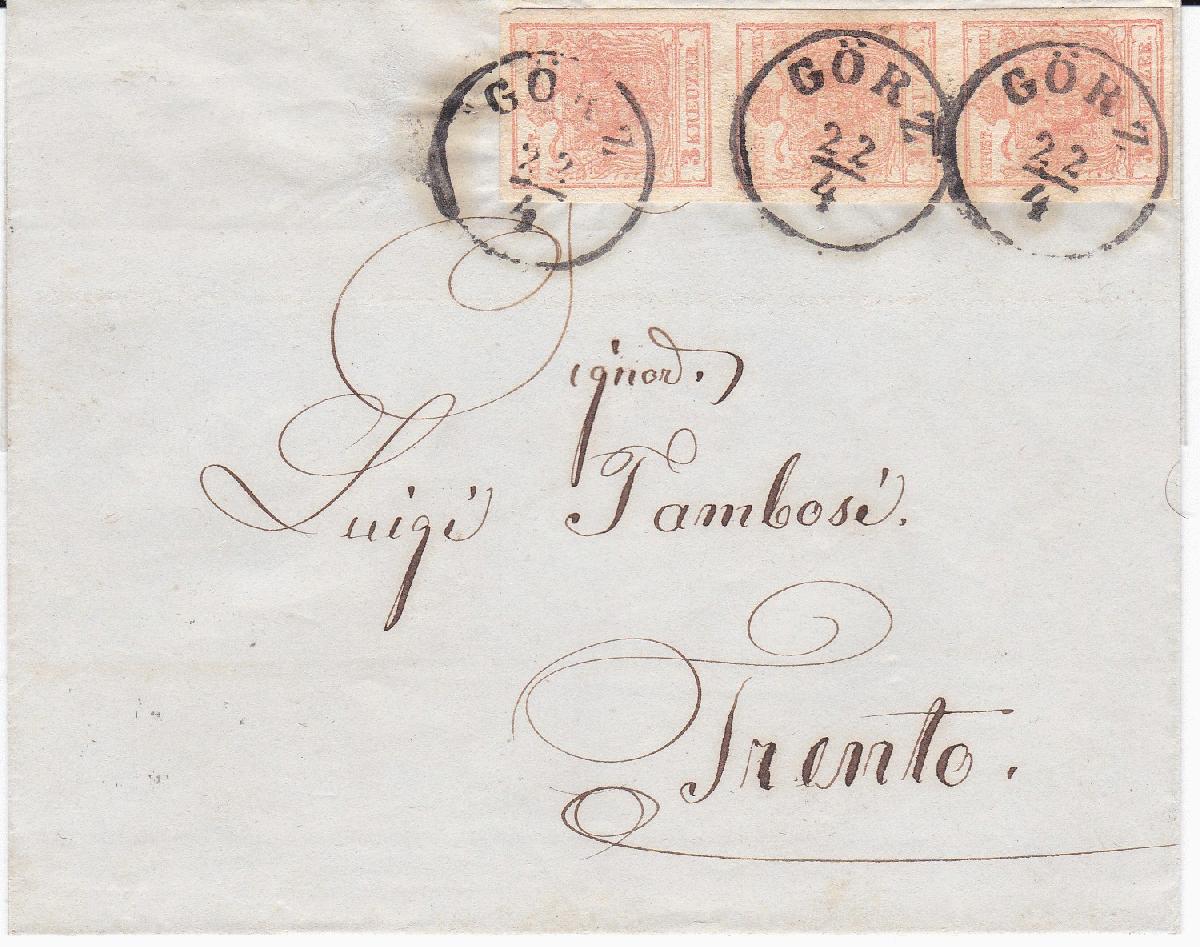 3 KREUZER
GÖRZ
22/4
GÖRZ
22/4
GÖRZ
22/4
Signor.
Luigi Tambosi.
Trento.